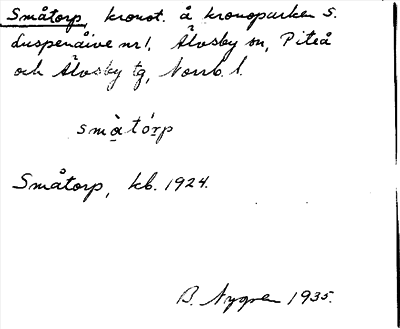 Småtorp, kronot. å kronoparken S.
Luspenåive nr 1, Älvsby sn, Piteå
och Älvsby tg, Norrb. l.
smà̱ tórp
Småtorp, kb. 1924.
B. Nygren 1935.